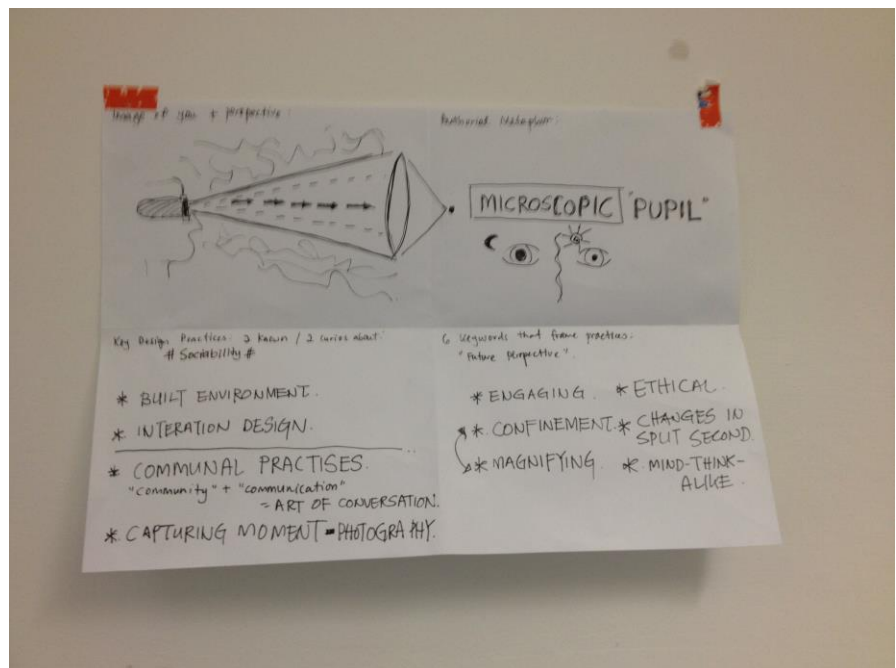 Image of you + perspective:
Authorial Metaphor:
MICROSCOPIC "PUPIL"
Key Design Practices: 2 known / 2 curios about:
# Sociability #
* BUILT ENVIRONMENT.
* INTERATION DESIGN.
* COMMUNAL PRACTISES.
"community" + "communication"
= ART OF CONVERSATION.
* CAPTURING MOMENT - PHOTOGRAPHY.
6 keywords that frame practices:
"Future Perspective".
* ENGAGING.
* ETHICAL.
* CONFINEMENT.
* CHANGES IN
SPLIT SECOND.
* MAGNIFYING.
* MIND-THINK-
ALIKE.